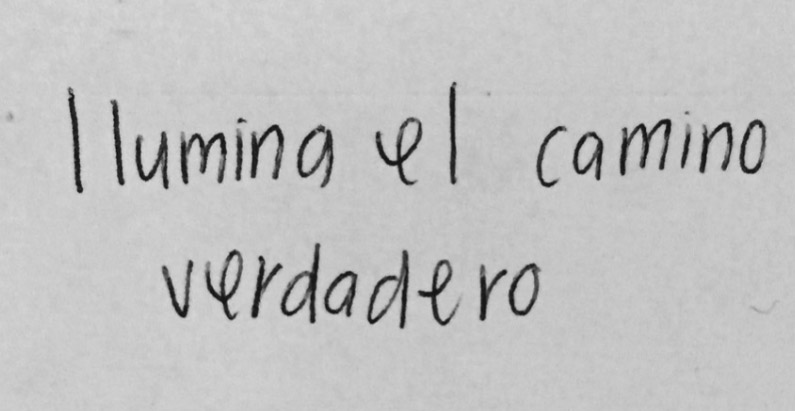 Ilumina el camino
verdadero